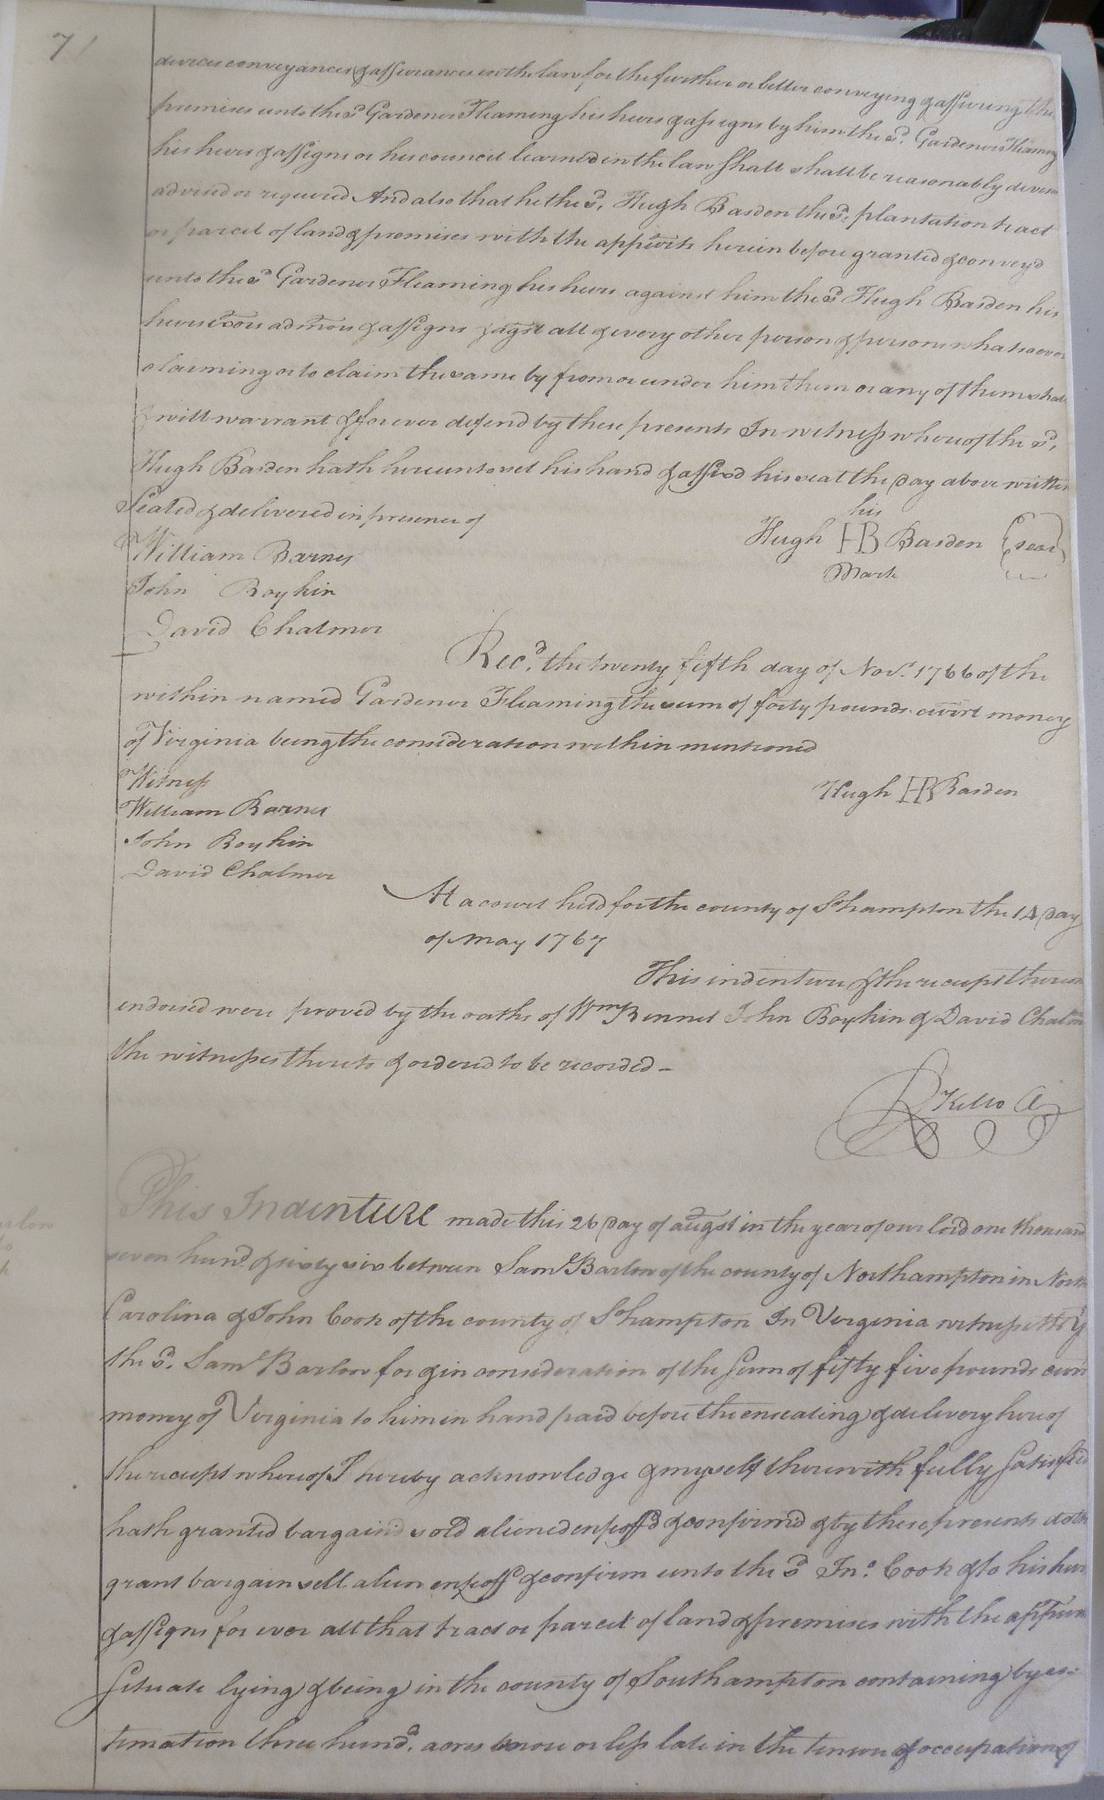 71
devices conveyances & assurances in the law for the further or better conveying & assuring the
premises unto the sd. Gardener Fleaming his heirs & assigns by him the sd. Gardener Fleaming
his heirs & assigns or his council learned in the law shall shall be reasonably devised
advised or required And also that he the sd. Hugh Basden the sd. plantation tract
or parcel of land & premises with the appurts herein before granted & convey'd
unto the sd Gardener Fleaming his heirs against him the sd Hugh Basden his
heirs Exors admors & assigns & agst all & every other person & persons whatsoever
claiming or to claim the same by from or under him them or any of them shall
& will warrant & for ever defend by these presents In witness whereof the sd.
Hugh Basden hath hereunto set his hand & affixd his seal the day above written
Sealed & delivered in presence of
his
William Barnes
Hugh HB Basden (seal)
John Boykin
Mark
David Chalmer
Recd. the twenty fifth day of Novr. 1766 of the
within named Gardener Fleaming the sum of forty pounds currt money
of Virginia being the consideration within mentioned
Witness
Hugh HB Basden
William Barnes
John Boykin
David Chalmer
At a court held for the county of So.hampton the 14 day
of May 1767
This indenture & the receipt thereon
endorsed were proved by the oaths of Wm Bennet John Boykin & David Chalm
the witnesses thereto & ordered to be recorded –
R Kello
This Indenture made this 26 day of augst in the year of our lord one thousand
seven hund. & sixty six between Saml Barlow of the county of Northampton in North
Carolina & John Cook of the county of So.hampton In Virginia witnesseth yt
the sd. Saml Barlow for & in consideration of the Sum of fifty five pounds curr
money of Virginia to him in hand paid before the ensealing & delivery hereof
the receipt whereof I hereby acknowledge & myself therewith fully Satisfied
hath granted bargained sold aliened enfeoffd & confirmd & by these presents doth
grant bargain sell alien enfeoff & confirm unto the sd Jno. Cook & to his heirs
& assigns for ever all that tract or parcel of land & premises with the appurn
Situate lying & being in the county of Southampton containing by es=
timation three hund. acres more or less late in the tenure & occupation of